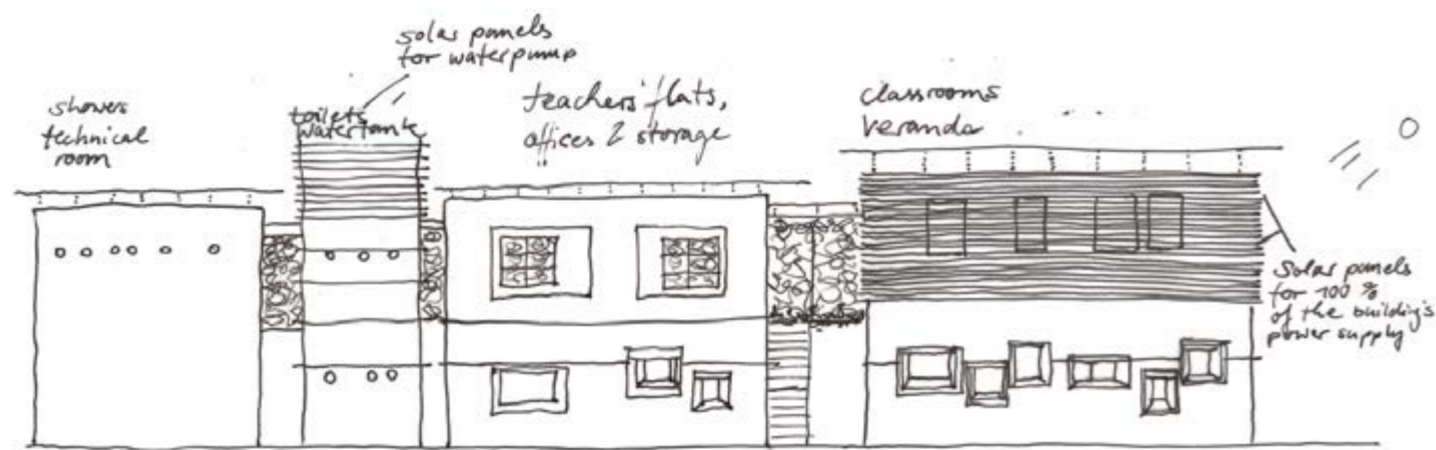 showers
technical
room
solar panels
for waterpump
toilets
watertank
teachers' flats,
offices & storage
classrooms
veranda
solar panels
for 100 %
of the building's
power supply